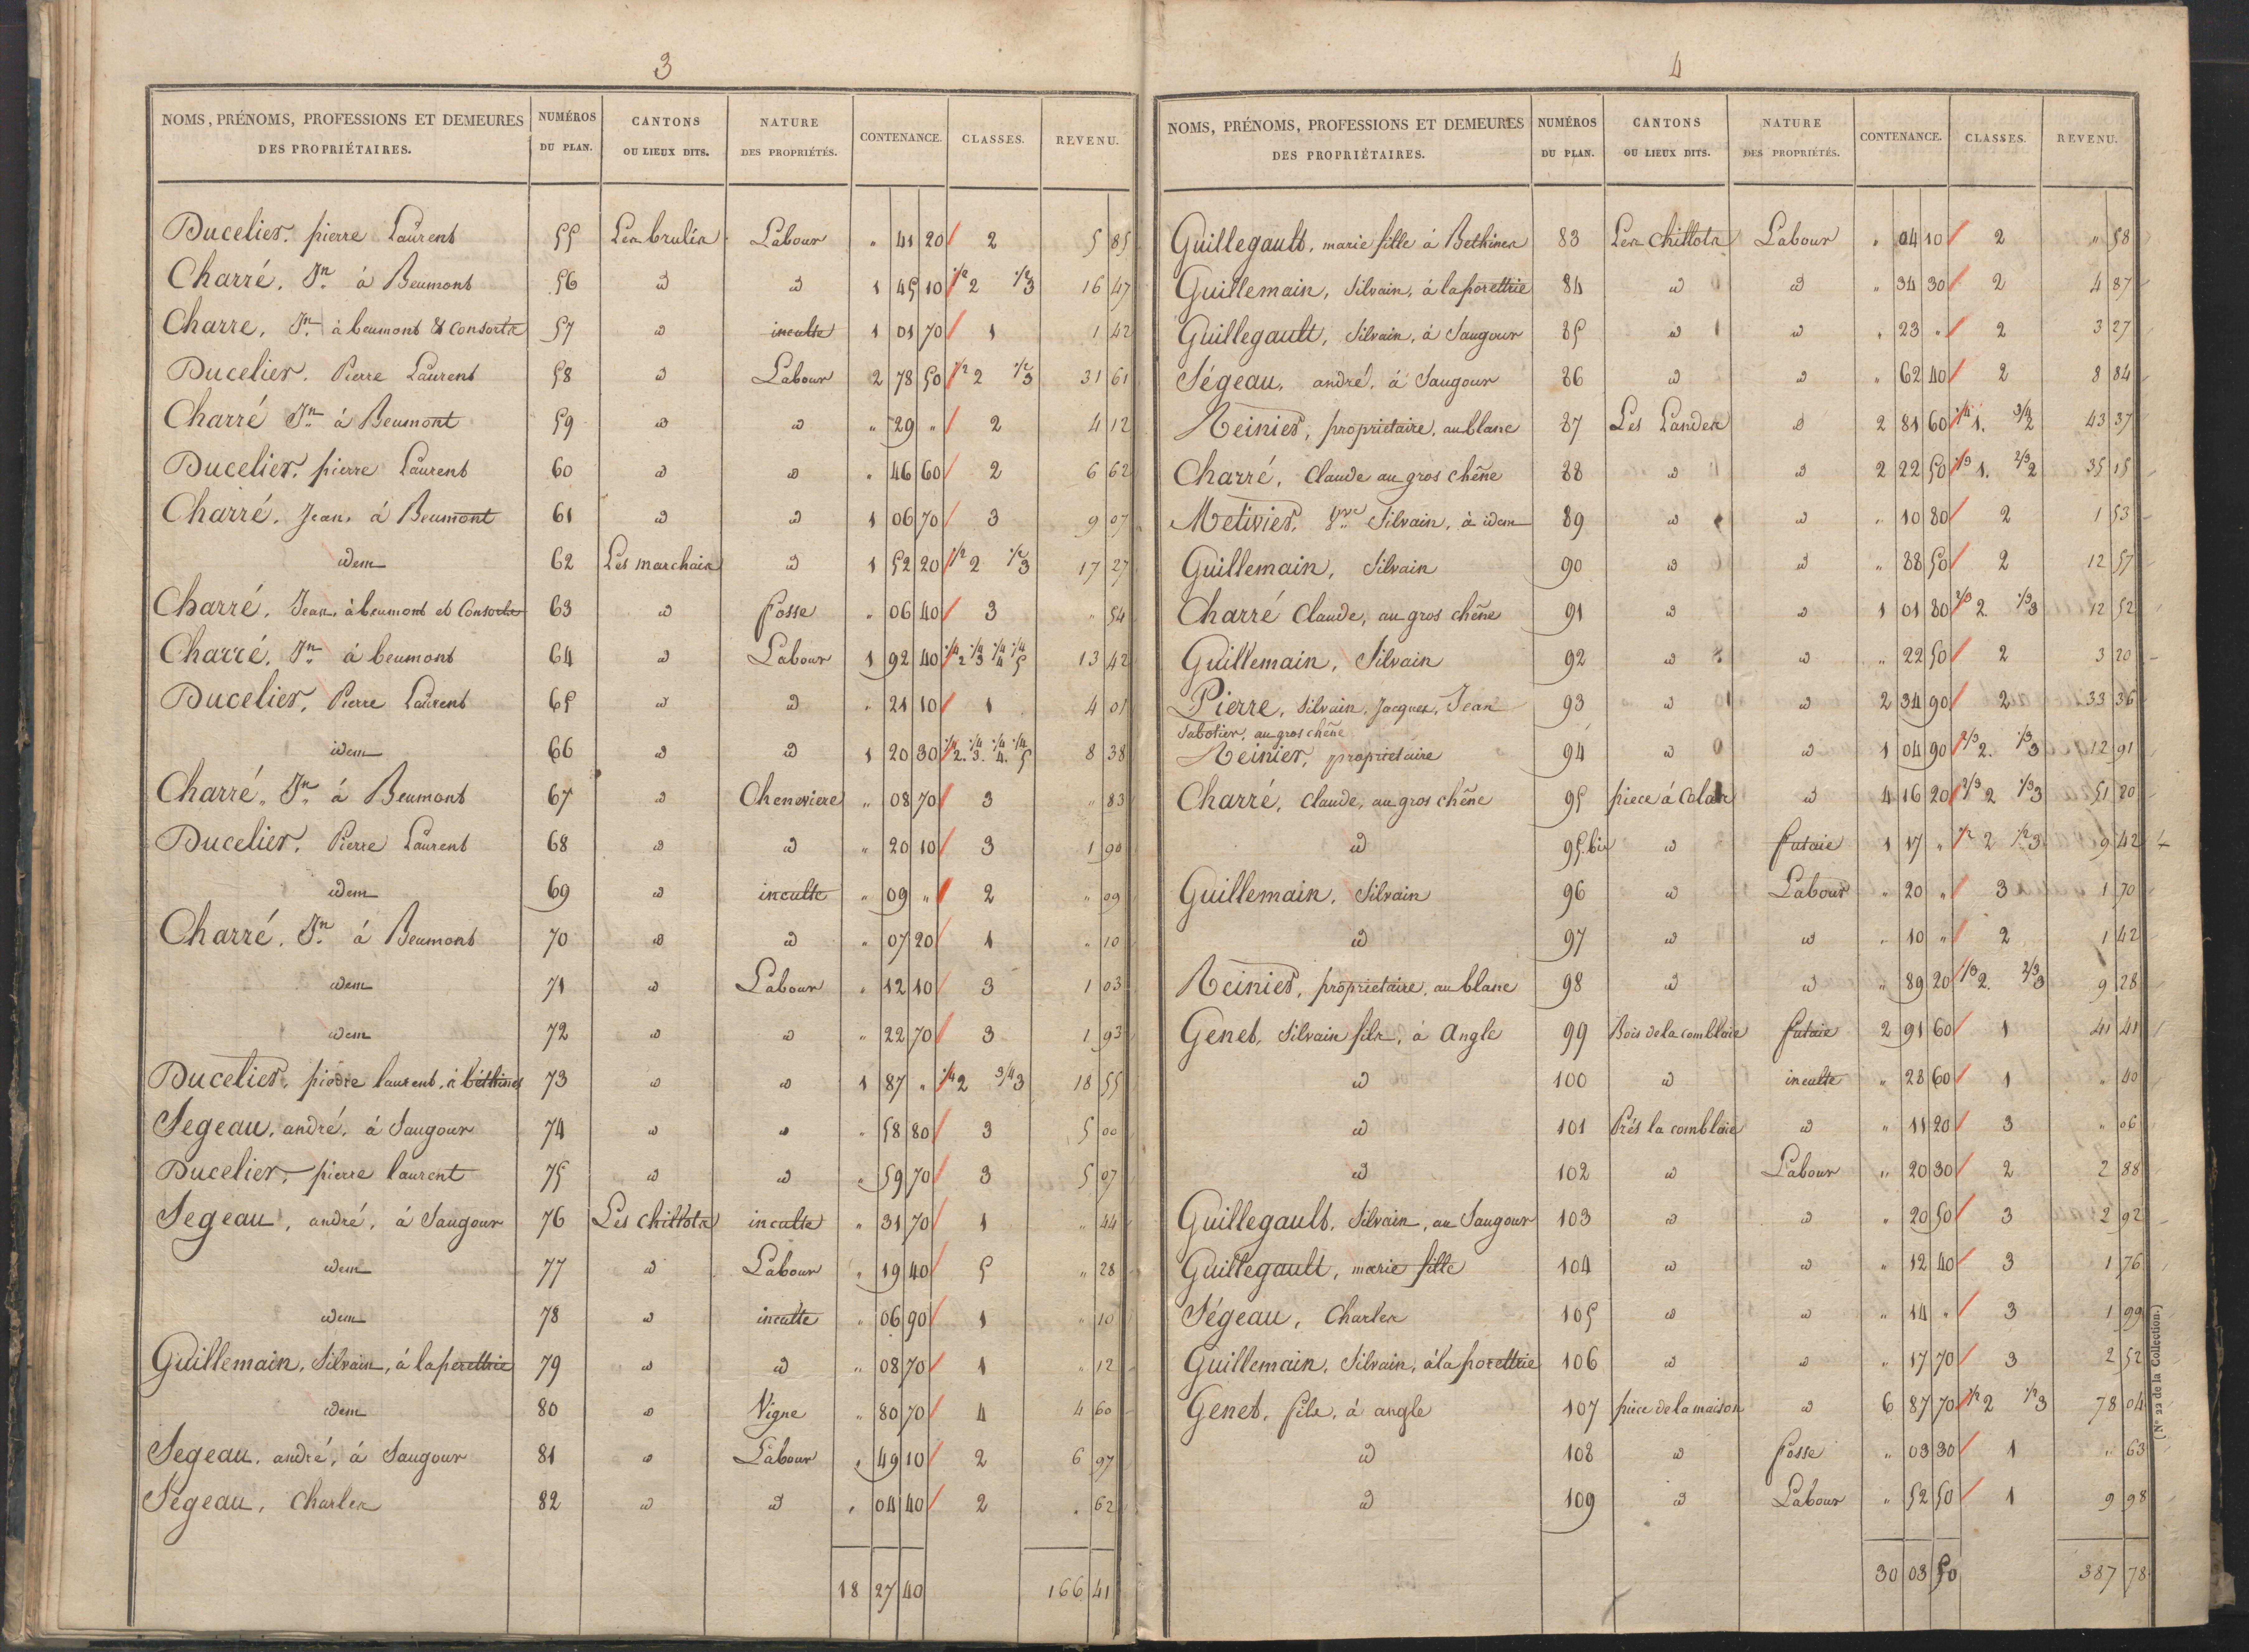 3
NOMS, PRÉNOMS, PROFESSIONS ET DEMEURES DES PROPRIÉTAIRES. NUMÉROS DU PLAN. CANTONS OU LIEUX DITS. NATURE DES PROPRIÉTÉS. CONTENANCE. CLASSES. REVENU.
Ducelier. pierre Laurent 55 Les brulés Labour " 41 20 2 5 85
Charré. Jn. à Beumont 56 id id 1 45 10 1/2 2 1/2 3 16 47
Charre, Jn. à beumont & Consorts 57 id inculte 1 01 70 1 1 42
Ducelier. Pierre Laurent 58 id Labour 2 78 50 1/2 2 1/2 3 31 61
Charré Jn. à Beumont 59 id id " 29 " 2 4 12
Ducelier. pierre Laurent 60 id id " 46 60 2 6 62
Charré. Jean, à Beumont 61 id id 1 06 70 3 9 07
idem 62 Les marchais id 1 52 20 1/2 2 1/2 3 17 27
Charré. Jean, à beumont et Consorts 63 id fosse " 06 40 3 " 54
Charré. Jn. à beumont 64 id Labour 1 92 40 1/4 2 1/4 3 1/4 4 1/4 5 13 42
Ducelier, Pierre Laurent 65 id id " 21 10 1 4 01
idem 66 id id 1 20 30 1/4 2. 1/4 3. 1/4 4. 1/4 5 8 38
Charré. Jn. à Beumont 67 id Cheneviere " 08 70 3 " 83
Ducelier. Pierre Laurent 68 id id " 20 10 3 1 90
idem 69 id inculte " 09 " 2 " 09
Charré. Jn. à Beumont 70 id id " 07 20 1 " 10
idem 71 id Labour " 12 10 3 1 03
idem 72 id id " 22 70 3 1 93
Ducelier. pierre laurent, à béthines 73 id id 1 87 " 1/4 2 3/4 3 18 55
Segeau, andré, à Saugour 74 id id " 58 80 3 5 00
Ducelier, pierre laurent 75 id id " 59 70 3 5 07
Segeau, andré, à Saugour 76 Les chillots inculte " 31 70 1 " 44
idem 77 id Labour " 19 40 5 " 28
idem 78 id inculte " 06 90 1 " 10
Guillemain, Silvain, à la porettrie 79 id id " 08 70 1 " 12
idem 80 id Vigne " 80 70 4 4 60
Segeau. andré, à Saugour 81 id Labour " 49 10 2 6 97
Segeau, Charles 82 id id " 04 40 2 " 62
18 27 40 166 41
4
NOMS, PRÉNOMS, PROFESSIONS ET DEMEURES DES PROPRIÉTAIRES. NUMÉROS DU PLAN. CANTONS OU LIEUX DITS. NATURE DES PROPRIÉTÉS. CONTENANCE. CLASSES. REVENU.
Guillegault, marie fille à Bethines 83 Les Chillots Labour " 04 10 2 " 58
Guillemain, Silvain, à la porettrie 84 id id " 34 30 2 4 87
Guillegault, Silvain, à Saugour 85 id id " 23 " 2 3 27
Ségeau, andré, à Saugour 86 id id " 62 40 2 8 84
Reinier, proprietaire, au blanc 87 Les Landes id 2 81 60 1/4 1. 3/4 2 43 37
Charré, Claude au gros chêne 88 id id 2 22 50 1/3 1. 2/3 2 35 15
Metivier, Silvain, à idem 89 id id " 10 80 2 1 53
Guillemain, Silvain 90 id id " 88 50 2 12 57
Charré Claude, au gros chêne 91 id id 1 01 80 2/3 2. 1/3 3 12 52
Guillemain, Silvain 92 id id " 22 50 2 3 20
Pierre, Silvain, Jacques, Jean 93 id id 2 34 90 2 33 36
Sabotier, au gros chêne
Reinier, proprietaire 94 id id 1 04 90 2/3 2. 1/3 3 12 91
Charré, Claude, au gros chêne 95 piece à Colas id 4 16 20 2/3 2 1/3 3 51 20
id 95.bis id futaie 1 17 " 1/2 2 1/2 3 9 42
Guillemain, Silvain 96 id Labour " 20 " 3 1 70
id 97 id id " 10 " 2 1 42
Reinier, proprietaire, au blanc 98 id id " 89 20 1/3 2. 2/3 3 9 28
Genet, Silvain fils, à Angle 99 Bois de la comblaie futaie 2 91 60 1 41 41
id 100 id inculte " 28 60 1 " 40
id 101 Prés la comblaie id " 11 20 3 " 06
id 102 id Labour " 20 30 2 2 88
Guillegault, Silvain, au Saugour 103 id id " 20 50 3 2 92
Guillegault, marie fille 104 id id " 12 40 3 1 76
Ségeau, Charles 105 id id " 14 " 3 1 99
Guillemain, Silvain, à la porettrie 106 id id " 17 70 3 2 52
Genet, fils, à angle 107 piece de la maison id 6 87 70 1/2 2 1/2 3 78 04
id 108 id fosse " 03 30 1 " 63
id 109 id Labour " 52 50 1 9 98
30 03 50 387 78
(N° 22 de la Collection.)